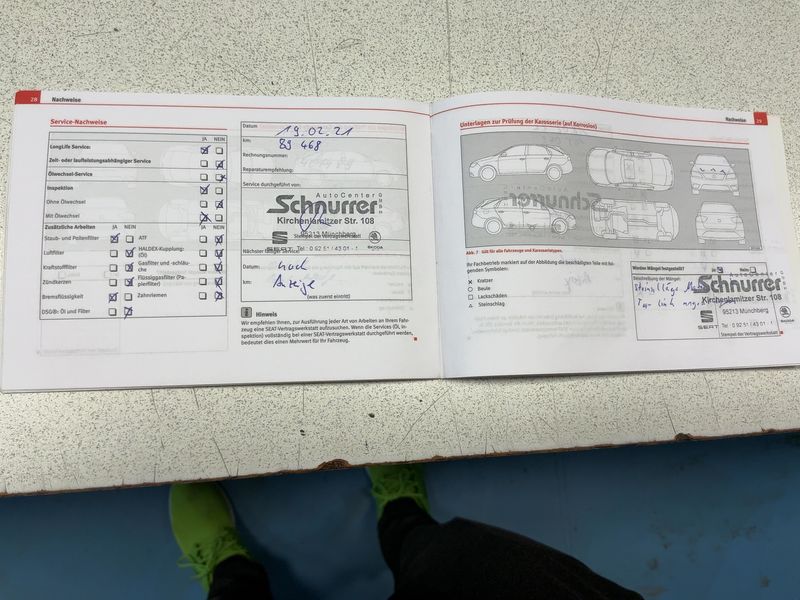 28 Nachweise
Service-Nachweise
JA NEIN
LongLife Service:
Zeit- oder laufleistungsabhängiger Service
Ölwechsel-Service
Inspektion
Ohne Ölwechsel
Mit Ölwechsel
Zusätzliche Arbeiten JA NEIN
Staub- und Pollenfilter
Luftfilter
Kraftstofffilter
Zündkerzen
Bremsflüssigkeit
DSG®: Öl und Filter
ATF
HALDEX-Kupplung: (Öl)
Gasfilter und -schläuche
Flüssiggasfilter (Papierfilter)
Zahnriemen
Datum 19.02.21
km: 89 468
Rechnungsnummer:
Reparaturempfehlung:
Service durchgeführt von:
AutoCenter GMBH
Schnurrer
Kirchenlamitzer Str. 108
95213 Münchberg
Stempel der Vertragswerkstatt
SEAT Tel. 0 92 51 / 43 01 - 1 SKODA
Nächster fälliger Service:
Datum: nach
km: Anzeige
(was zuerst eintritt)
Hinweis
Wir empfehlen Ihnen, zur Ausführung jeder Art von Arbeiten an Ihrem Fahr-
zeug eine SEAT-Vertragswerkstatt aufzusuchen. Wenn die Services (Öl, In-
spektion) vollständig bei einer SEAT-Vertragswerkstatt durchgeführt werden,
bedeutet dies einen Mehrwert für Ihr Fahrzeug.
Nachweise 29
Unterlagen zur Prüfung der Karosserie (auf Korrosion)
Abb. 7 Gilt für alle Fahrzeuge und Karosserietypen.
Ihr Fachbetrieb markiert auf der Abbildung die beschädigten Teile mit fol-
genden Symbolen:
Kratzer
Beule
Lackschäden
Steinschlag
Wurden Mängel festgestellt? Ja Nein
Beschreibung der Mängel:
AutoCenter
Schnurrer
Kirchenlamitzer Str. 108
95213 Münchberg
SEAT Tel. 0 92 51 / 43 01 - 1 SKODA
Stempel der Vertragswerkstatt